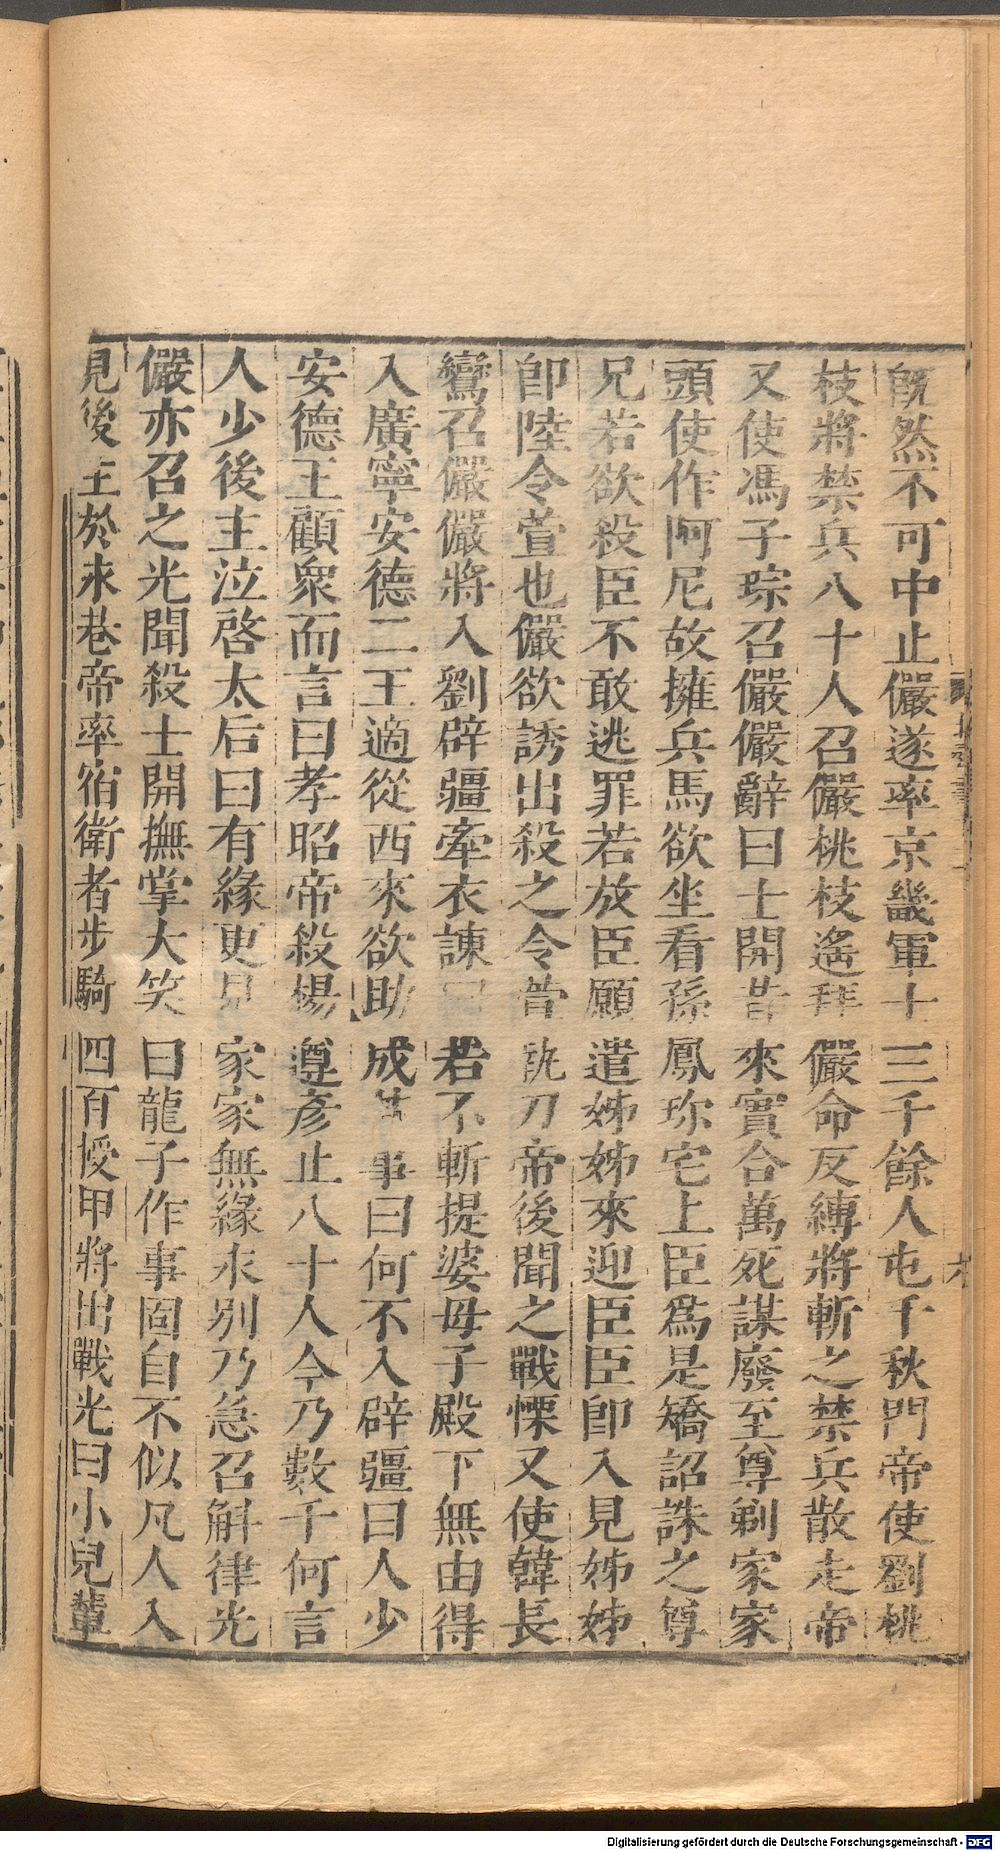 旣然不可中止儼遂率京畿軍士三千餘人屯千秋門帝使劉桃
枝將禁兵八十人召儼桃枝遙拜儼命反縛將斬之禁兵散走帝
又使馮子琮召儼儼辭曰士開昔來實合萬死謀廢至尊剃家家
頭使作阿尼故擁兵馬欲坐看孫鳳珎宅上臣爲是矯詔誅之尊
兄若欲殺臣不敢逃罪若放臣願遣姊姊來迎臣臣卽入見姊姊
卽陸令萱也儼欲誘出殺之令萱執刀帝後聞之戰慄又使韓長
鸞召儼儼將入劉辟疆牽衣諫曰若不斬提婆母子殿下無由得
入廣寧安德二王適從西來欲助成其事曰何不入辟疆曰人少
安德王顧衆而言曰孝昭帝殺楊遵彥止八十人今乃數千何言
人少後主泣啓太后曰有緣更見家家無緣永別乃急召斛律光
儼亦召之光聞殺士開撫掌大笑曰龍子作事固自不似凡人入
見後主於永巷帝率宿衛者步騎四百授甲將出戰光曰小兒輩
北齊書
六
Digitalisierung gefördert durch die Deutsche Forschungsgemeinschaft - DFG